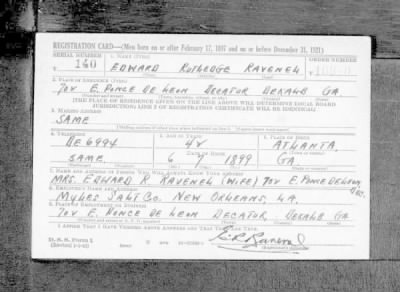 REGISTRATION CARD—(Men born on or after February 17, 1897 and on or before December 31, 1921)
SERIAL NUMBER 1. NAME (Print) ORDER NUMBER
T 140 EDWARD RUTLEDGE RAVENEL T
(First) (Middle) (Last)
2. PLACE OF RESIDENCE (Print)
704 E. PONCE DE LEON DECATUR DEKALB GA
(Number and street) (Town, township, village, or city) (County) (State)
[THE PLACE OF RESIDENCE GIVEN ON THE LINE ABOVE WILL DETERMINE LOCAL BOARD
JURISDICTION; LINE 2 OF REGISTRATION CERTIFICATE WILL BE IDENTICAL]
3. MAILING ADDRESS
SAME
[Mailing address if other than place indicated on line 2. If same insert word same]
4. TELEPHONE 5. AGE IN YEARS 6. PLACE OF BIRTH
DE 6994 42 ATLANTA
DATE OF BIRTH
SAME 6 7 1899 GA.
7. NAME AND ADDRESS OF PERSON WHO WILL ALWAYS KNOW YOUR ADDRESS
MRS. EDWARD R. RAVENEL (WIFE) 704 E. PONCE DELEON
8. EMPLOYER'S NAME AND ADDRESS
MYLES SALT CO. NEW ORLEANS, LA.
9. PLACE OF EMPLOYMENT OR BUSINESS
704 E. PONCE DE LEON DECATUR, DEKALB GA
(Number and street or R. F. D. number) (Town) (County) (State)
I AFFIRM THAT I HAVE VERIFIED ABOVE ANSWERS AND THAT THEY ARE TRUE.
D. S. S. Form 1
(Revised 1-1-42) (over) E. R. Ravenel
(Registrant's signature)